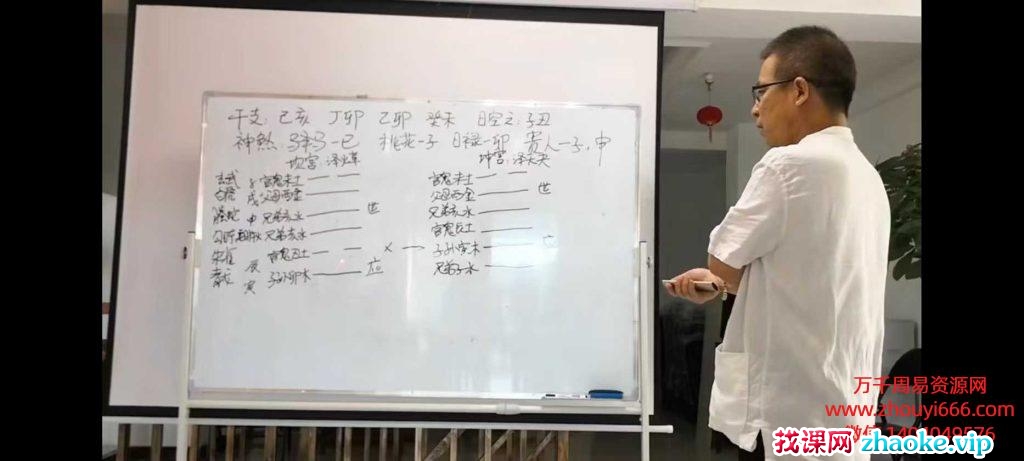 干支: 己亥 丁卯 乙卯 癸未 日空亡:子丑
神煞: 驿马—巳 桃花—子 日禄—卯 贵人—子,申
坎宫:泽火革 坤宫:泽天夬
玄武 官鬼未土 官鬼未土
白虎 戌 父母酉金 父母酉金 世
螣蛇 申 兄弟亥水 世 兄弟亥水
勾陈 兄弟亥水 官鬼辰土
朱雀 辰 官鬼丑土 × 子孙寅木
青龙 寅 子孙卯木 应 兄弟子水
万千周易资源网
www.zhouyi666.com
找课网 zhaoke.vip